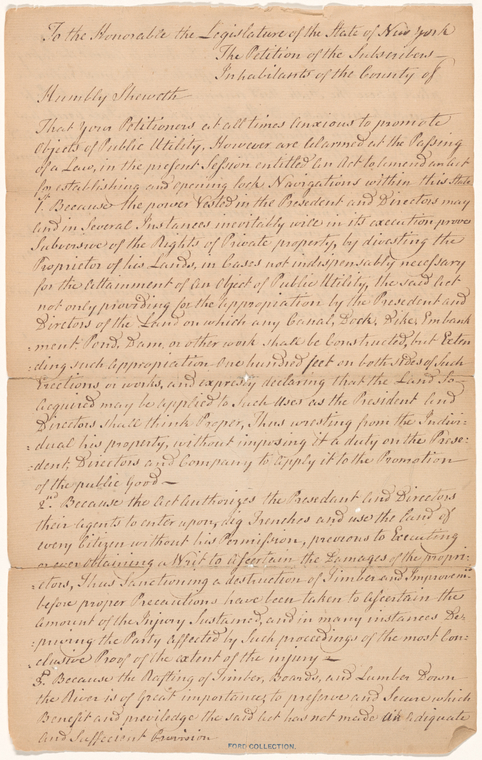 To the Honorable the Legislature of the State of New York
The Petition of the Subscribers
Inhabitants of the County of
Humbly Sheweth
That Your Petitioners at all times anxious to promote
Objects of Public Utility, However are alarmed at the Passing
of a Law, in the present Session entitled An Act to amend an act
for establishing and opening lock Navigations within this State
1st Because the power Vested in the President and Directors may
and in Several Instances inevitably will in its execution prove
Subversive of the Rights of Private property, by divesting the
Proprietor of his Lands, in Cases not indispensably necessary
for the Attainment of an Object of Public Utility, the said Act
not only providing for the Appropriation by the President and
Directors of the Land on which any Canal, Dock, Dike, Embank
-ment Pond, Dam or other work shall be Constructed, but Exten
-ding such appropriation One hundred feet on both sides of Such
Erections or works, and expressly declaring that the Land So
acquired may be applied to Such Uses as the President and
Directors shall think Proper, Thus wresting from the Indivi-
-dual his property, without imposing it a duty on the Presi-
-dent, Directors and Company to apply it to the Promotion
of the public good —
2nd Because the Act Authorizes the Presedant and Directors
their Agents to enter upon, dig Trenches and use the land of
every Citizen without his Permission, previous to Executing
or even obtaining a Writ to Ascertain the Damages of the propri-
-etors, Thus Sanctioning a destruction of Timber and Improvemts
before proper Precautions have been taken to ascertain the
amount of the Injury Sustained, and in many instances De-
-priving the Party affected by Such proceedings of the most Con-
-clusive Proof of the extent of the injury —
3. Because the Rafting of Timber, Boards, and Lumber Down
the River is of Great importance, to preserve and Secure which
Benefit and priviledge the said Act has not made an adequate
and Sufficient Provision
FORD COLLECTION.